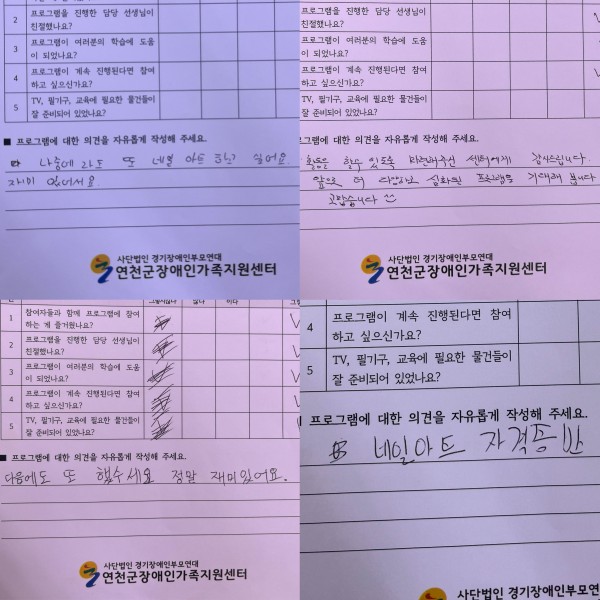 2 프로그램을 진행한 담당 선생님이
친절했나요?
3 프로그램이 여러분의 학습에 도움
이 되었나요?
4 프로그램이 계속 진행된다면 참여
하고 싶으신가요?
5 TV, 필기구, 교육에 필요한 물건들이
잘 준비되어 있었나요?
■ 프로그램에 대한 의견을 자유롭게 작성해 주세요.
나중에 라도 또 네일 아트 하고 싶어요.
재미 있어서요
사단법인 경기장애인부모연대
연천군장애인가족지원센터
프로그램을 진행한 담당 선생님이
친절했나요?
프로그램이 여러분의 학습에 도움
이 되었나요?
프로그램이 계속 진행된다면 참여
하고 싶으신가요?
TV, 필기구, 교육에 필요한 물건들이
잘 준비되어 있었나요?
프로그램에 대한 의견을 자유롭게 작성해 주세요.
할수 있도록 센터에게 감사드립니다.
앞으로 더 다양하고 심화된 프로그램을 기대해 봅니다
사단법인 경기장애인부모연대
연천군장애인가족지원센터
1 참여자들과 함께 프로그램에 참여
하는 게 즐거웠나요?
2 프로그램을 진행한 담당 선생님이
친절했나요?
3 프로그램이 여러분의 학습에 도움
이 되었나요?
4 프로그램이 계속 진행된다면 참여
하고 싶으신가요?
5 TV, 필기구, 교육에 필요한 물건들이
잘 준비되어 있었나요?
■ 프로그램에 대한 의견을 자유롭게 작성해 주세요.
다음에도 또 했수세요 정말 재미있어요.
사단법인 경기장애인부모연대
연천군장애인가족지원센터
4 프로그램이 계속 진행된다면 참여
하고 싶으신가요?
5 TV, 필기구, 교육에 필요한 물건들이
잘 준비되어 있었나요?
프로그램에 대한 의견을 자유롭게 작성해 주세요.
네일아트 자격증반
사단법인 경기장애인부모연대
연천군장애인가족지원센터